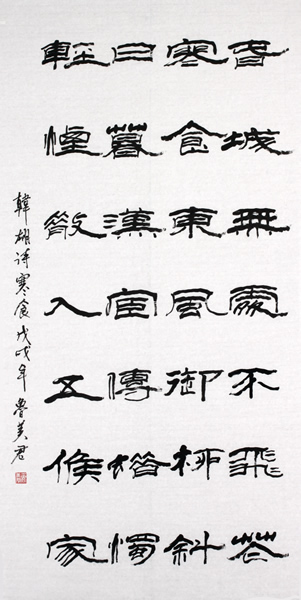 春城無處不飛花
寒食東風御柳斜
日暮漢宮傳蜡燭
輕煙散入五侯家
韓翃诗寒食戊戌年魯美君